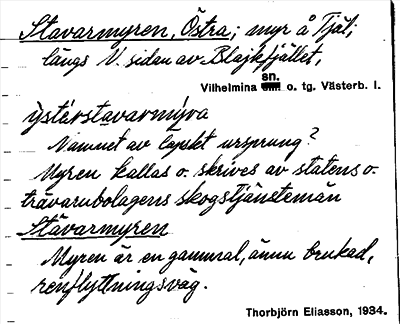 Stavarmyren, Östra; myr å Tjäl;
längs V. sidan av Blajkfjället,
sn.
Vilhelmina o. tg. Västerb. l.
ÿstǻrstavarmýra
Namnet av lapskt ursprung?
Myren kallas o. skrives av statens o.
trävarubolagens skogstjänstemän
Stavarmyren
Myren är en gammal, ännu brukad,
renflyttningsväg.
Thorbjörn Eliasson, 1934.